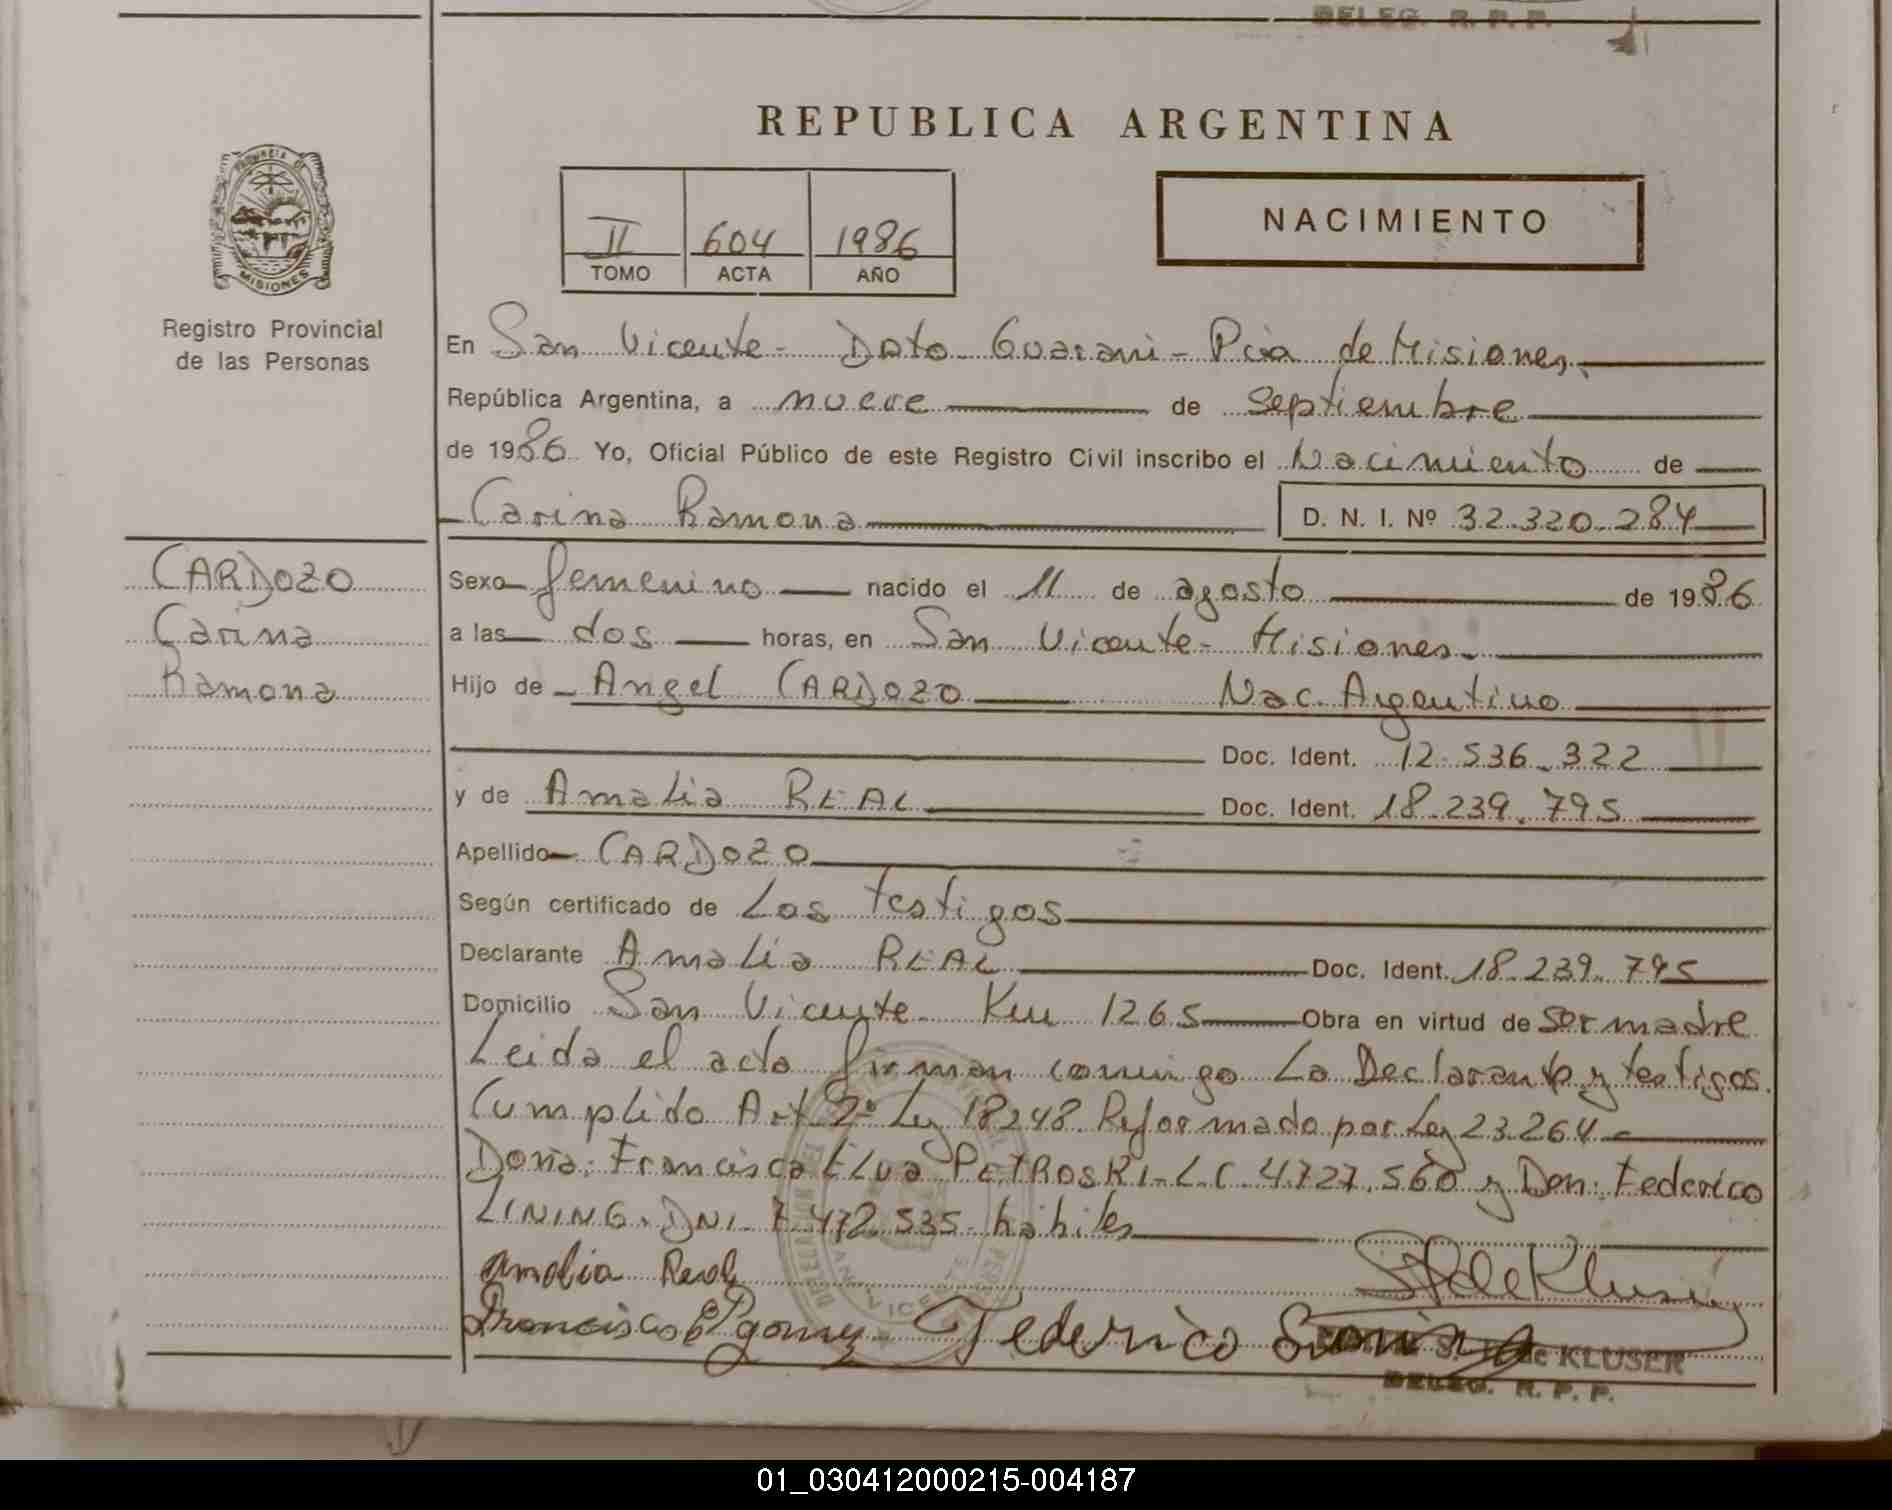 DELEG. R. P. P.
REPUBLICA ARGENTINA
PROVINCIA DE
MISIONES
II 604 1986
TOMO ACTA AÑO
NACIMIENTO
Registro Provincial
de las Personas
En San Vicente - Dpto Guarani - Pcia de Misiones
República Argentina, a nueve de Septiembre
de 1986 Yo, Oficial Público de este Registro Civil inscribo el Nacimiento de
Carina Ramona D. N. I. Nº 32.320.284
CARDOZO
Carina
Ramona
Sexo femenino nacido el 11 de agosto de 1986
a las dos horas, en San Vicente - Misiones.
Hijo de Angel CARDOZO Nac. Argentino
Doc. Ident. 12.536.322
y de Amalia REAL Doc. Ident. 18.239.795
Apellido CARDOZO
Según certificado de Los testigos
Declarante Amalia REAL Doc. Ident. 18.239.795
Domicilio San Vicente Km 1265 Obra en virtud de ser madre
Leida el acta firman conmigo La Declarante y testigos.
Cumplido Art 2º Ley 18248 Reformado por Ley 23.264
Doña: Francisca Elva PETROSKI - L.C. 4.727.560 y Don: Federico
LINING. DNI. 7.472.535 - hábiles
Amalia Real
Federico
S. de KLUSER
DELEG. R. P. P.
01_030412000215-004187